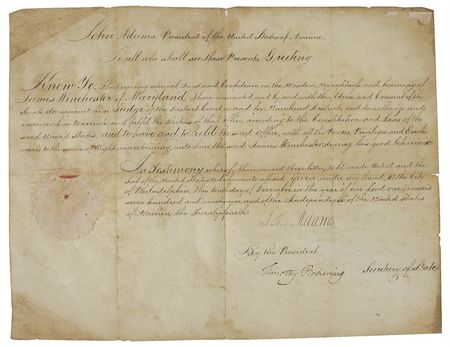 John Adams, President of the United States of America,
To all who shall see these Presents, Greeting
Know Ye, That reposing special Trust and Confidence in the Wisdom, Uprightness and Learning of
James Winchester of Maryland, I have nominated and by and with the Advice and Consent of the
Senate do appoint him Judge of the District Court in and for Maryland District, and do authorize and
empower him to execute and fulfil the Duties of that Office according to the Constitution and Laws of the
said United States, and to have and to hold the said Office, with all the Powers, Privileges and Emolu
ments to the same of Right appertaining, unto him the said James Winchester during his good behaviour
In Testimony whereof I have caused these letters to be made Patent and the
Seal of the United States to be hereunto affixed. Given under my hand, at the City
of Philadelphia, this tenth day of December in the year of our Lord one thousand
seven hundred and ninety nine and of the Independence of the United States
of America, the Twenty fourth.
John Adams
By the President
Timothy Pickering Secretary of State